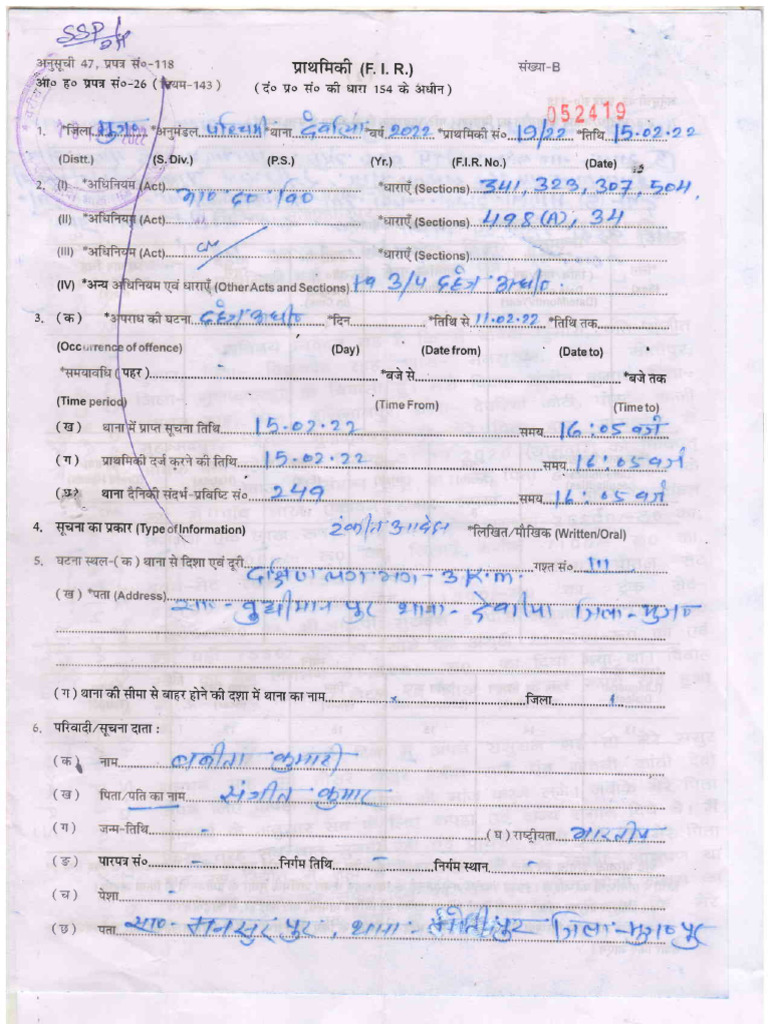 SSP
अनुसूची 47, प्रपत्र सं०-118 प्राथमिकी (F. I. R.) संख्या-B
आ० ह० प्रपत्र सं०-26 ( नियम-143 ) ( दं० प्र० सं० की धारा 154 के अधीन )
052419
1. *जिला मुज० *अनुमंडल पश्चिमी *थाना देवरिया *वर्ष 2022 *प्राथमिकी सं० 19/22 *तिथि 15.02.22
(Distt.) (S. Div.) (P.S.) (Yr.) (F.I.R. No.) (Date)
2. (I) *अधिनियम (Act) भा० द० वि० *धाराएँ (Sections) 341, 323, 307, 504,
(II) *अधिनियम (Act) *धाराएँ (Sections) 498(A), 34
(III) *अधिनियम (Act) *धाराएँ (Sections)
(IV) *अन्य अधिनियम एवं धाराएँ (Other Acts and Sections) 3/4 दहेज अधि०
3. (क) *अपराध की घटना दहेज अधि० *दिन *तिथि से 11.02.22 *तिथि तक
(Occurrence of offence) (Day) (Date from) (Date to)
*समयावधि ( पहर ) - *बजे से *बजे तक
(Time period) (Time From) (Time to)
(ख) थाना में प्राप्त सूचना तिथि 15.02.22 समय 16:05 बजे
(ग) प्राथमिकी दर्ज करने की तिथि 15.02.22 समय 16:05 बजे
(घ) थाना दैनिकी संदर्भ-प्रविष्टि सं० 249 समय 16:05 बजे
4. सूचना का प्रकार (Type of Information) टंकीत आवेदन *लिखित/मौखिक (Written/Oral)
5. घटना स्थल-( क ) थाना से दिशा एवं दूरी दक्षिण लगभग - 3 K.m. गश्त सं० III
( ख ) *पता (Address) सा०- बुधीमान पुर थाना- देवरिया जिला- मुज०
( ग ) थाना की सीमा से बाहर होने की दशा में थाना का नाम x जिला
6. परिवादी/सूचना दाता :
( क ) नाम बबीता कुमारी
( ख ) पिता/पति का नाम संगीत कुमार
( ग ) जन्म-तिथि - ( घ ) राष्ट्रीयता भारतीय
( ङ ) पारपत्र सं० - निर्गम तिथि - निर्गम स्थान -
( च ) पेशा
( छ ) पता सा०- मनसुर पुर, थाना- मोतीपुर जिला- मुज० पुर